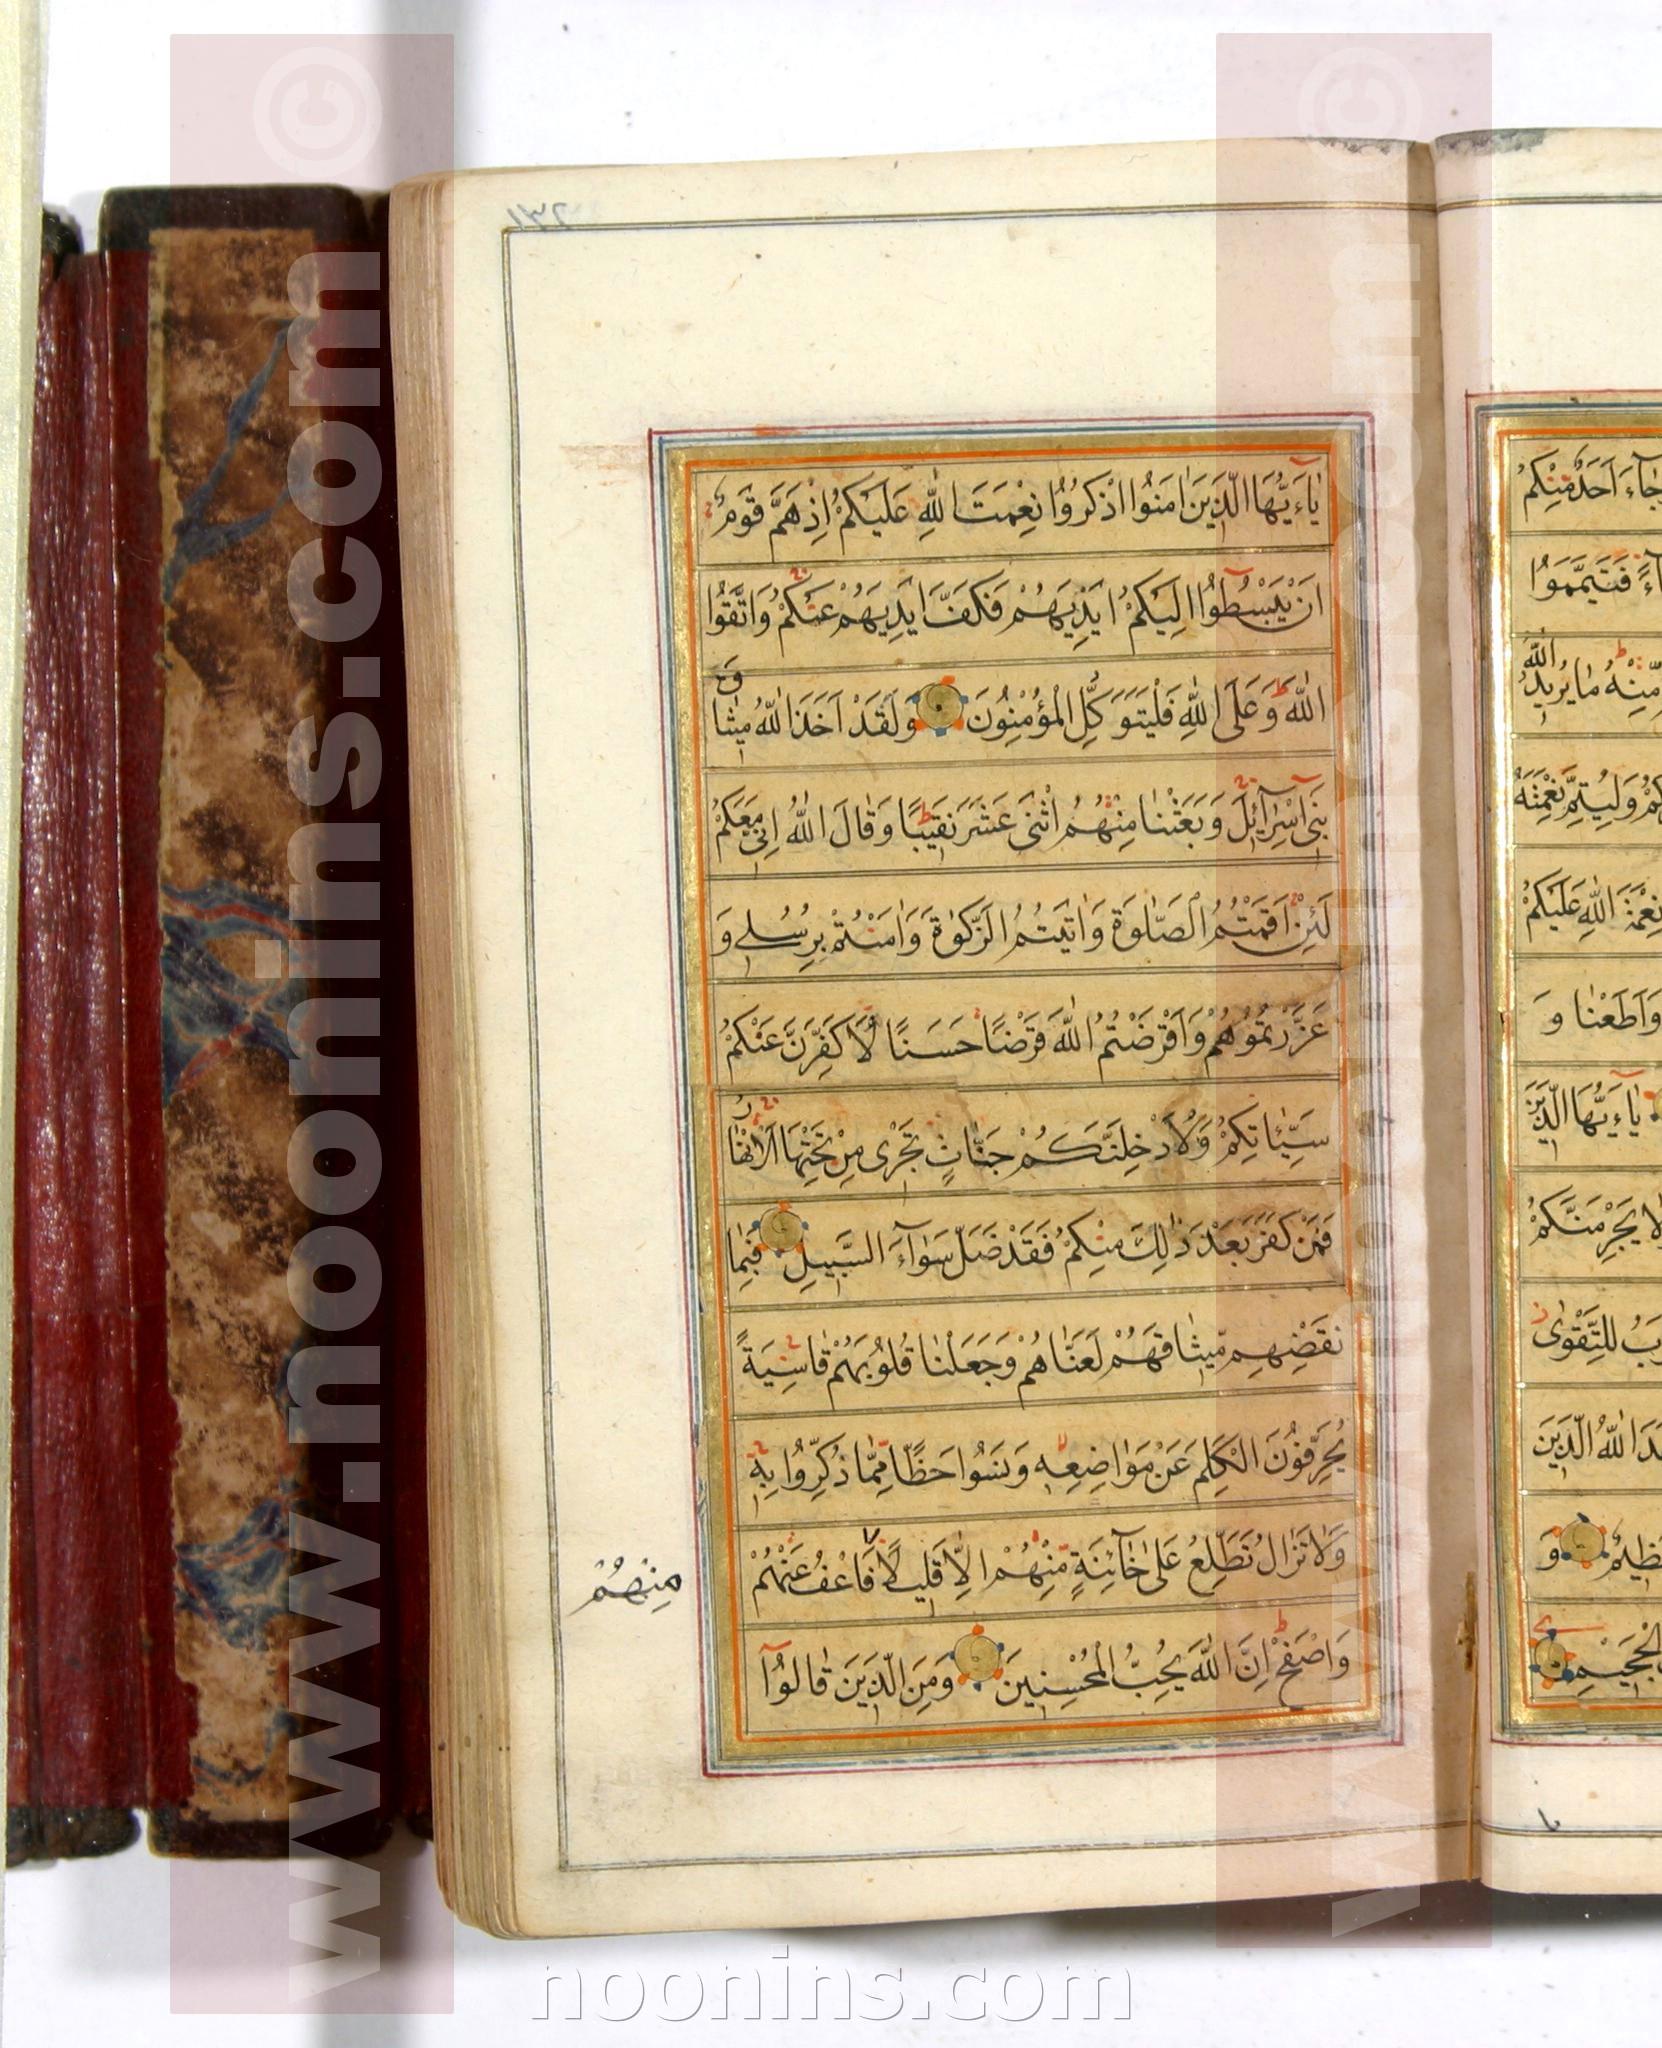 يٰاءَيُّهَا الَّذَيِنَ اٰمَنُوا اذْكُرُوُا نِعْمَتَ اللّٰهِ عَلَيْكُمْ اِذْ هَمَّ قَوَمٌ
اَنْ يَبْسُطُوُا اِلَيْكُمْ اَيْدِيَهُمْ فَكَفَّ اَيْدِيَهُمْ عَنْكُمْ وَاتَّقُوا
اللّٰهَ وَعَلَى اللّٰهِ فَلْيَتَوَكَّلِ الْمُؤْمِنُونَ وَلَقَدْ اَخَذَ اللّٰهُ ميٖثٰاقَ
بَنىٖ اِسْرٰائيٖلَ وَبَعَثْنٰا مِنْهُمُ اثْنَىْ عَشَرَ نَقيٖبًا وَقٰالَ اللّٰهُ اِنّىٖ مَعَكُمْ
لَئِنْ اَقَمْتُمُ الصَّلٰوةَ وَاٰتَيْتُمُ الزَّكٰوةَ وَاٰمَنْتُمْ بِرُسُلىٖ وَ
عَزَّرْتُمُوُهُمْ وَاَقْرَضْتُمُ اللّٰهَ قَرْضًا حَسَنًا لَاُكَفِّرَنَّ عَنْكُمْ
سَيِّئٰاتِكُمْ وَلَاُدْخِلَنَّكُمْ جَنّٰاتٍ تَجْرىٖ مِنْ تَحْتِهَا الْاَنْهٰارُ
فَمَنْ كَفَرَ بَعْدَ ذٰلِكَ مِنْكُمْ فَقَدْ ضَلَّ سَوٰاءَ السَّبيٖلِ فَبِمٰا
نَقْضِهِمْ ميٖثٰاقَهُمْ لَعَنّٰاهُمْ وَجَعَلْنٰا قُلُوُبَهُمْ قٰاسِيَةً
يُحَرِّفُونَ الْكَلِمَ عَنْ مَوٰاضِعِهٖ وَنَسُوا حَظًّا مِمّٰا ذُكِّرُوُا بِهٖ
وَلٰا تَزٰالُ تَطَّلِعُ عَلىٰ خٰائِنَةٍ مِنْهُمْ اِلّٰا قَليٖلًا فَاعْفُ عَنْهُمْ
مِنْهُمْ
وَاصْفَحْ اِنَّ اللّٰهَ يُحِبُّ الْمُحْسِنيٖنَ وَمِنَ الَّذيٖنَ قٰالُوُا
جٰاءَ اَحَدٌ مِنْكُمْ
فَتَيَمَّمُوا
مِنْهُ مٰا يُريٖدُ اللّٰهُ
وَلِيُتِمَّ نِعْمَتَهُ
نِعْمَةَ اللّٰهِ عَلَيْكُمْ
وَاَطَعْنٰا وَ
يٰاءَيُّهَا الَّذيٖنَ
لٰا يَجْرِمَنَّكُمْ
لِلتَّقْوٰى
اللّٰهُ الَّذيٖنَ
وَ
الْجَحيٖمِ
www.noonins.com ©
www.noonins.com ©
noonins.com